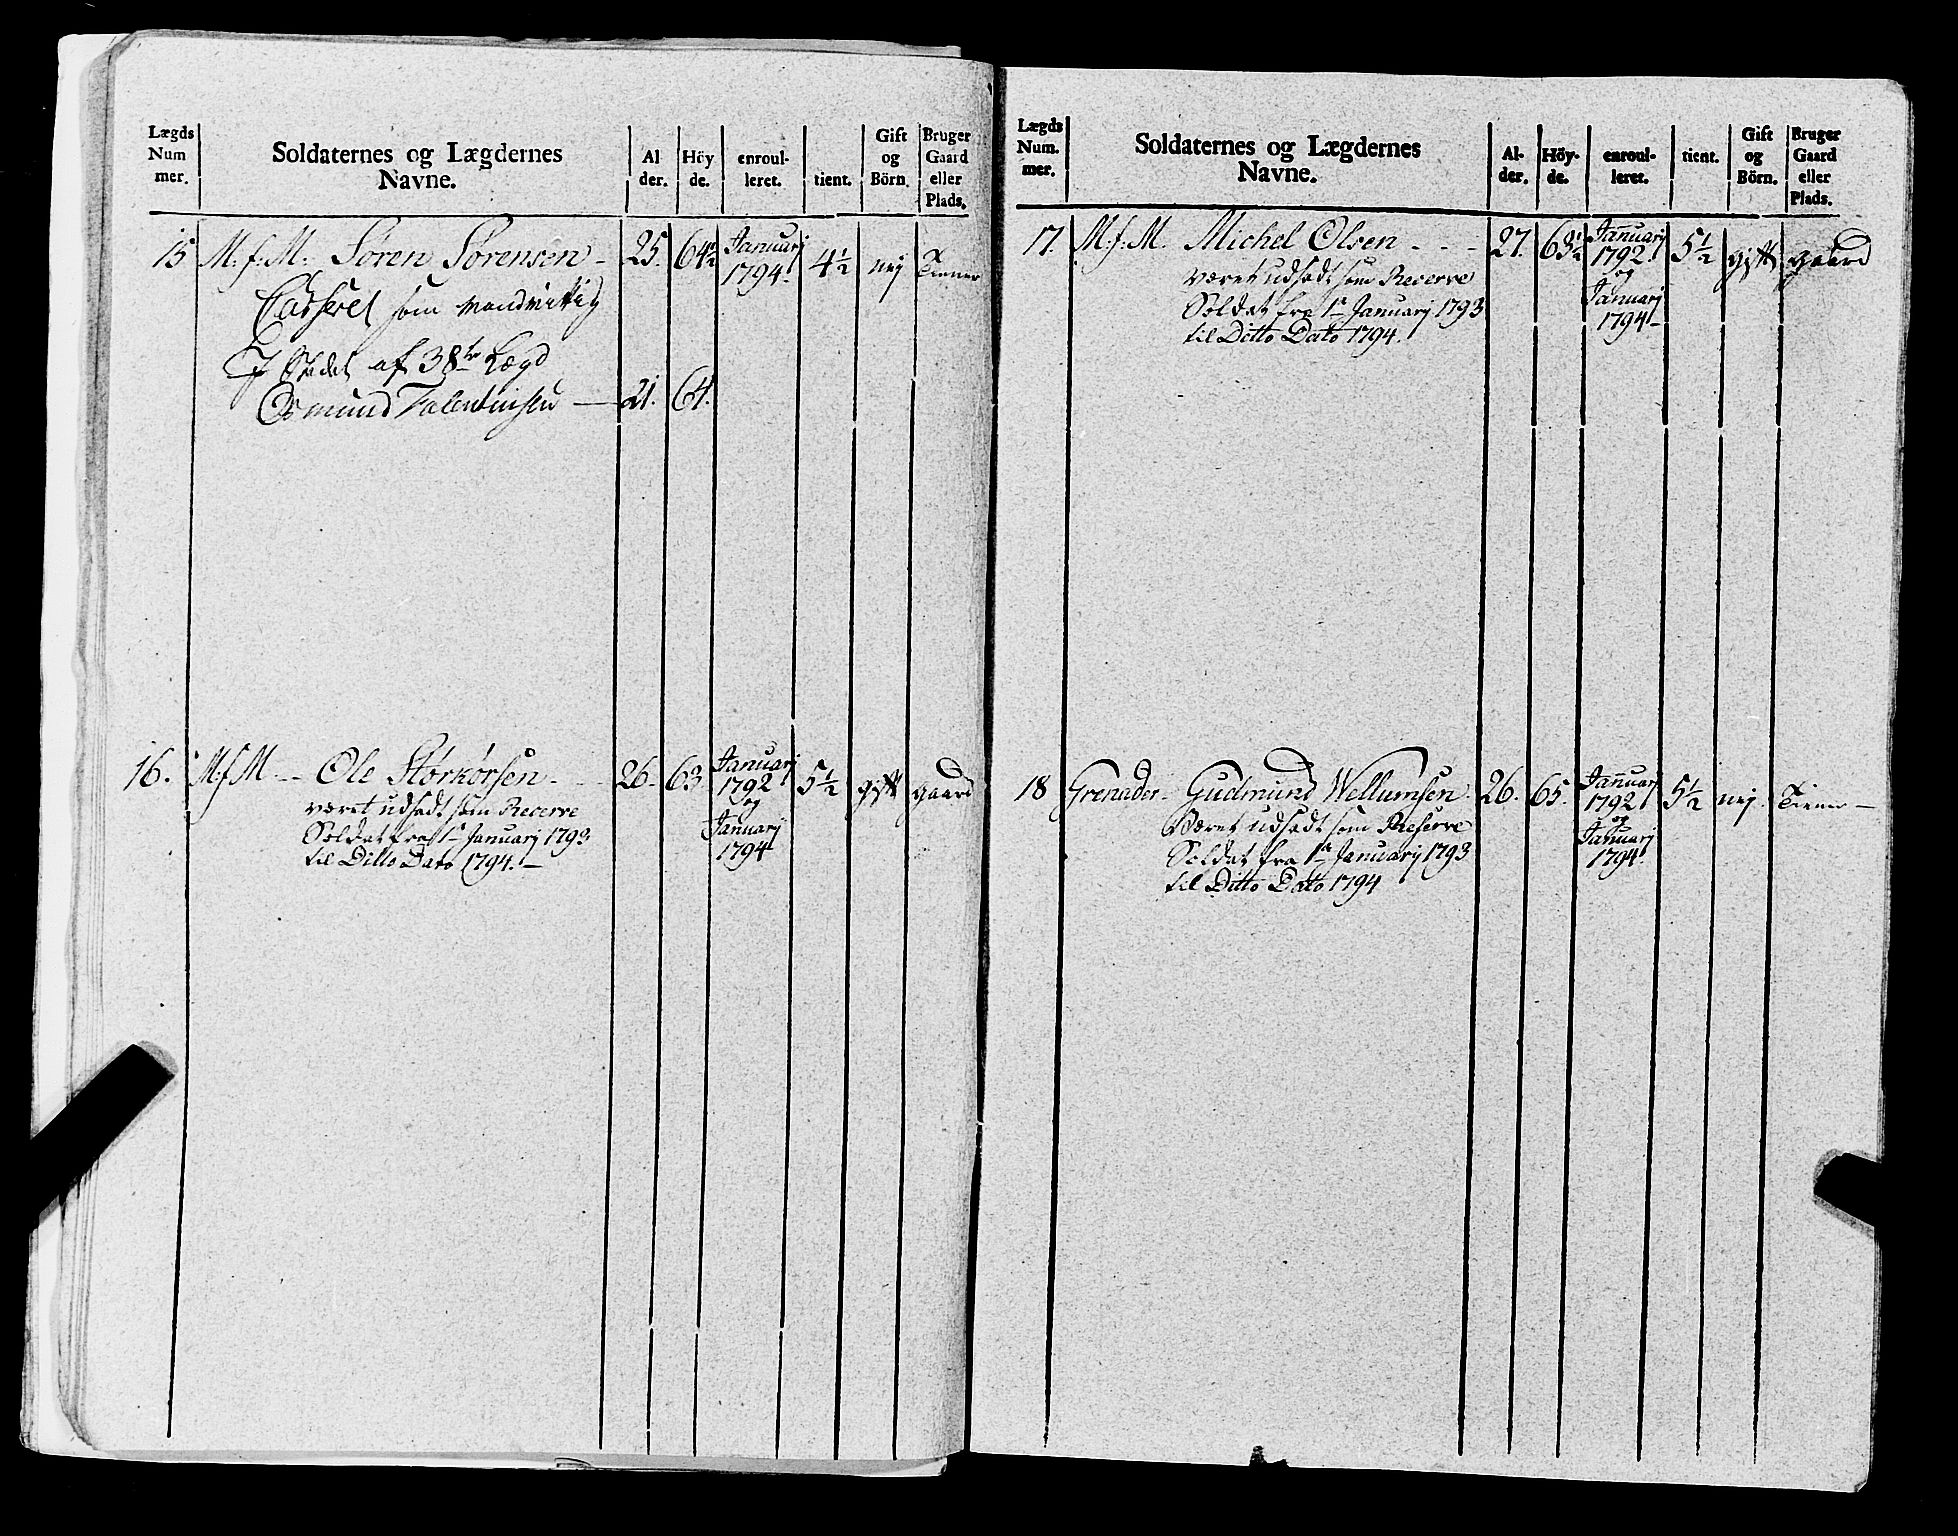 Lægds Num mer. Soldaternes og Lægdernes Navne. Al der. Höy de. enroul- leret. tient. Gift og Börn. Bruger Gaard eller Plads.
15 M.f.M. Søren Sørensen 25. 64½ Januarj 1794. 4½ nej Tiener
Casseret som
I Stedet af 38te Lægd
Osmund Falentinsen 21. 64.
16. M.f.M Ole Størkørsen 26. 63. Januarj 1792 og Januarj 1794 5½ gift gaard
været udsadt som Recerve
Soldat fra 1te Januarj 1793
til Ditto Dato 1794.
Lægds Num. mer. Soldaternes og Lægdernes Navne. Al- der. Höy- de. enroul- leret. tient. Gift og Börn. Bruger Gaard eller Plads.
17. M.f.M. Michel Olsen 27. 63½ Januarj 1792. og Januarj 1794 5½ gift gaard
været udsadt som Recerve
Soldat fra 1te Januarj 1793
til Ditto Dato 1794.
18 Grenader Gudmund Wellumsen 26. 65. Januarj 1792 og Januarj 1794. 5½ nej. Tiener
Været udsadt som Reserve
Soldat fra 1te Januarij 1793
til Ditto Dato 1794